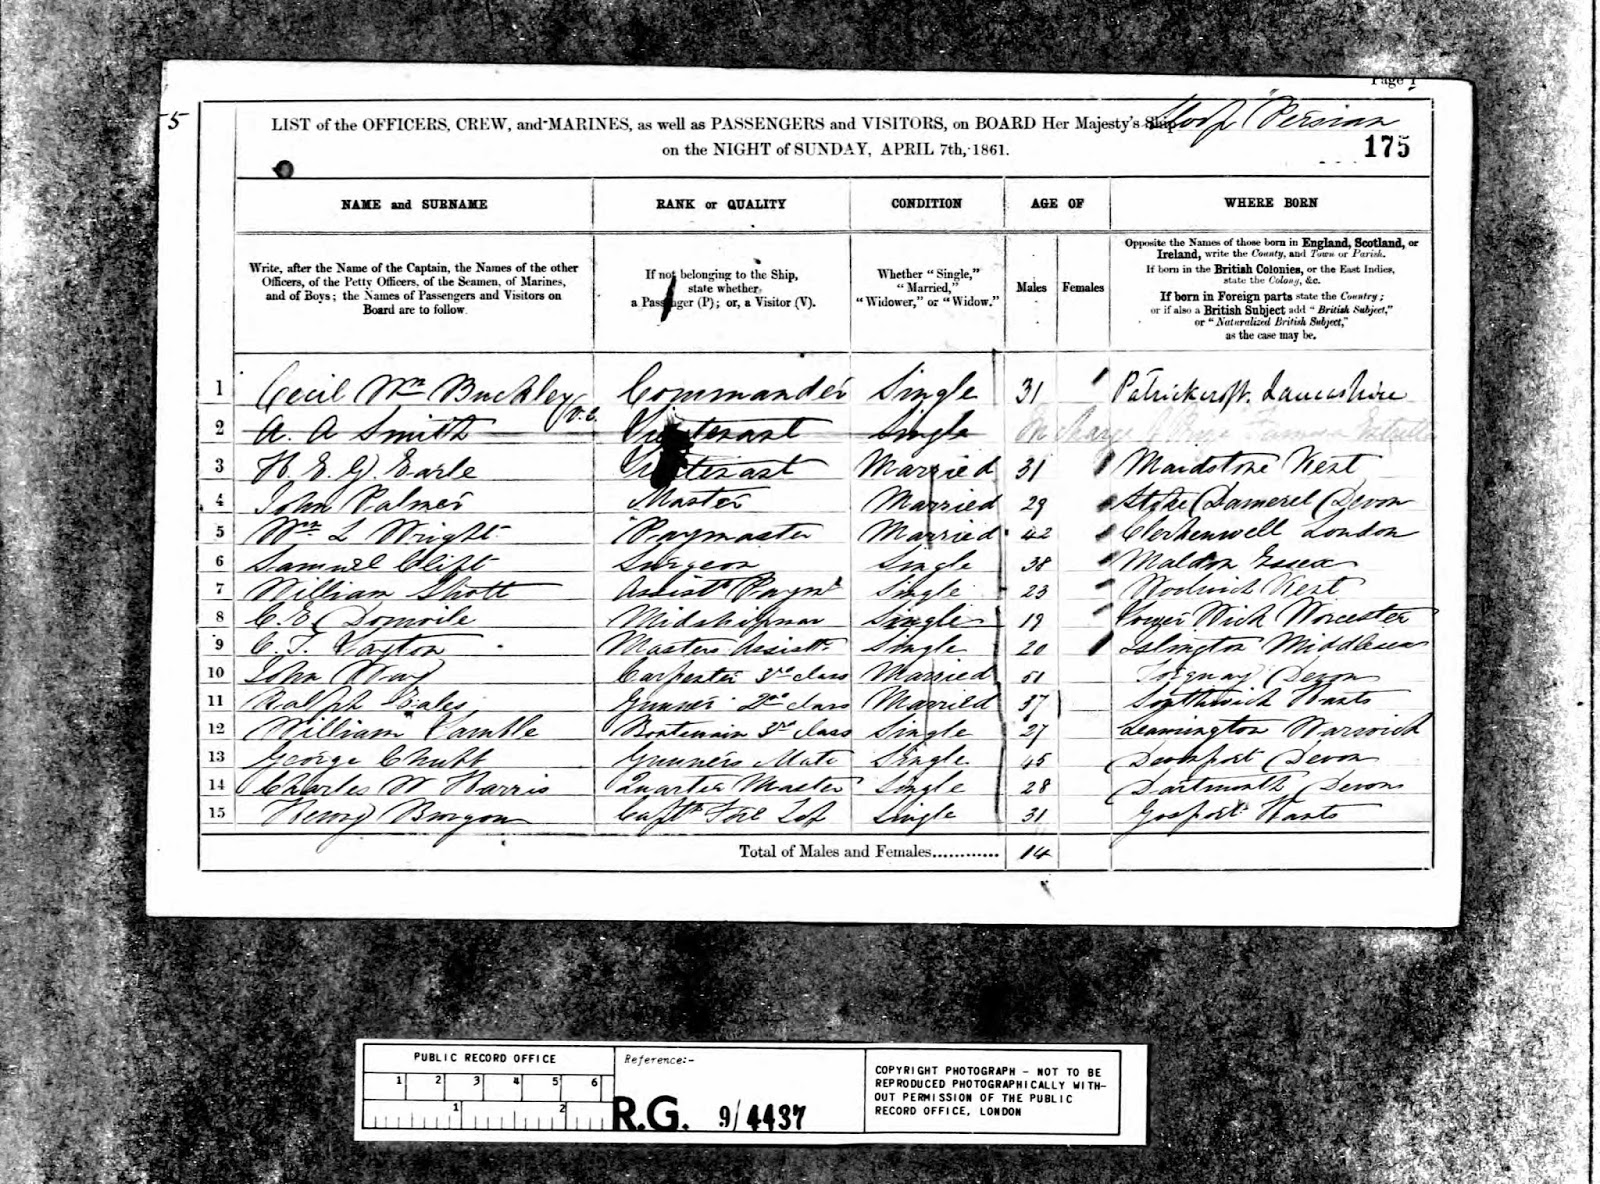 Page 1
5
LIST of the OFFICERS, CREW, and MARINES, as well as PASSENGERS and VISITORS, on BOARD Her Majesty's Ship Sloop "Persian
on the NIGHT of SUNDAY, APRIL 7th, 1861.
175
NAME and SURNAME RANK or QUALITY CONDITION AGE OF WHERE BORN
Write, after the Name of the Captain, the Names of the other
Officers, of the Petty Officers, of the Seamen, of Marines,
and of Boys; the Names of Passengers and Visitors on
Board are to follow.
If not belonging to the Ship,
state whether
a Passenger (P); or, a Visitor (V).
Whether "Single,"
"Married,"
"Widower," or "Widow."
Males Females
Opposite the Names of those born in England, Scotland, or
Ireland, write the County, and Town or Parish.
If born in the British Colonies, or the East Indies,
state the Colony, &c.
If born in Foreign parts state the Country;
or if also a British Subject add "British Subject,"
or "Naturalized British Subject,"
as the case may be.
1 Cecil Wm Buckley V.C. Commander Single 31 Patrickcroft Lancashire
2 A. A Smith Lieutenant Single In charge of Prize
3 H. E. G. Earle Lieutenant Married 31 Maidstone Kent
4 John Palmer Master Married 29 Stoke Damerel Devon
5 Wm L Wright Paymaster Married 42 Clerkenwell London
6 Samuel Clift Surgeon Single 38 Maldon Essex
7 William Shott Assist Paymr Single 23 Woolwich Kent
8 C. E. Domvile Midshipman Single 19 Lower Wick Worcester
9 C. T. Layton Masters Assistt Single 20 Islington Middlesex
10 John Way Carpenter 3rd class Married 51 Torquay Devon
11 Ralph Eales Gunner 2nd class Married 37 Southwick Hants
12 William Gamble Boatswain 3rd class Single 27 Leamington Warwick
13 George Chubb Gunners Mate Single 45 Devonport Devon
14 Charles W Harris Quarter Master Single 28 Dartmouth Devon
15 Henry Burgon Captn Fore Top Single 31 Gosport Hants
Total of Males and Females............ 14
PUBLIC RECORD OFFICE
1 2 3 4 5 6
1 2
Reference:-
R.G. 9/4437
COPYRIGHT PHOTOGRAPH - NOT TO BE
REPRODUCED PHOTOGRAPHICALLY WITH-
OUT PERMISSION OF THE PUBLIC
RECORD OFFICE, LONDON